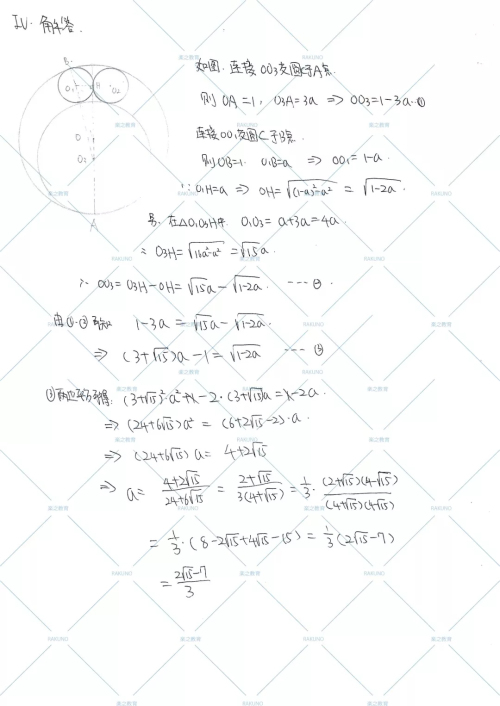 IV. 解答.
如图. 连接 OO3交圆C于A点.
则 OA=1, O3A=3a ⇒ OO3=1-3a ①
连接OO1交圆C于B点.
则OB=1. O1B=a ⇒ OO1=1-a.
∵ O1H=a ⇒ OH=√((1-a)²-a²) = √(1-2a).
另. 在△O1O3H中. O1O3= a+3a=4a.
∴ O3H=√(16a²-a²) =√15 a.
∴ OO3= O3H-OH=√15 a-√(1-2a). ---- ②
由①.②可知 1-3a = √15 a-√(1-2a).
⇒ (3+√15)a-1=√(1-2a) ---- ③
③两边平方得: (3+√15)²·a²+1-2·(3+√15)a=1-2a.
⇒ (24+6√15)a² = (6+2√15-2)·a.
⇒ (24+6√15) a= 4+2√15
⇒ a= (4+2√15)/(24+6√15) = (2+√15)/(3(4+√15)) = 1/3 · (2+√15)(4-√15)/(4+√15)(4-√15)
= 1/3·(8-2√15+4√15-15) = 1/3(2√15-7)
= (2√15-7)/3
B
O1
H
O2
O
O2
A
美之教育
RAKUNO